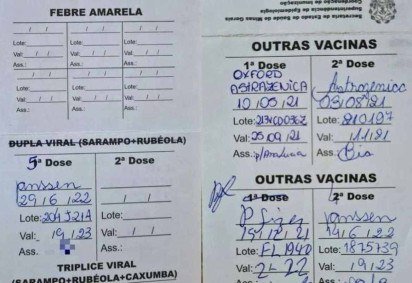 FEBRE AMARELA
Lote: Lote: Lote:
Val: Val: Val:
Ass.: Ass.: Ass.:
Lote: Lote: Lote:
Val: Val: Val:
Ass.: Ass.: Ass.:
DUPLA VIRAL (SARAMPO+RUBÉOLA)
5ª Dose 2ª Dose
Janssen
29/6/22
Lote: Lote:
Val: 19/23 Val:
Ass.: Ass.:
TRIPLICE VIRAL
(SARAMPO+RUBÉOLA+CAXUMBA)
Secretaria de Estado da Saúde de Minas Gerais
Superintendência Epidemiologia
Coordenação de Imunização
OUTRAS VACINAS
1ª Dose 2ª Dose
OXFORD
ASTRAZENICA Astrazenica
10/05/21 03/08/21
Lote: Lote: 210197
Val: 25/09/21 Val: 11/21
Ass.: Ass.: Bia
OUTRAS VACINAS
1ª Dose 2ª Dose
Pfizer Janssen
Lote: FL1940 Lote: 1875739
Val: 2/22 Val: 19/23
Ass.: Ass.: